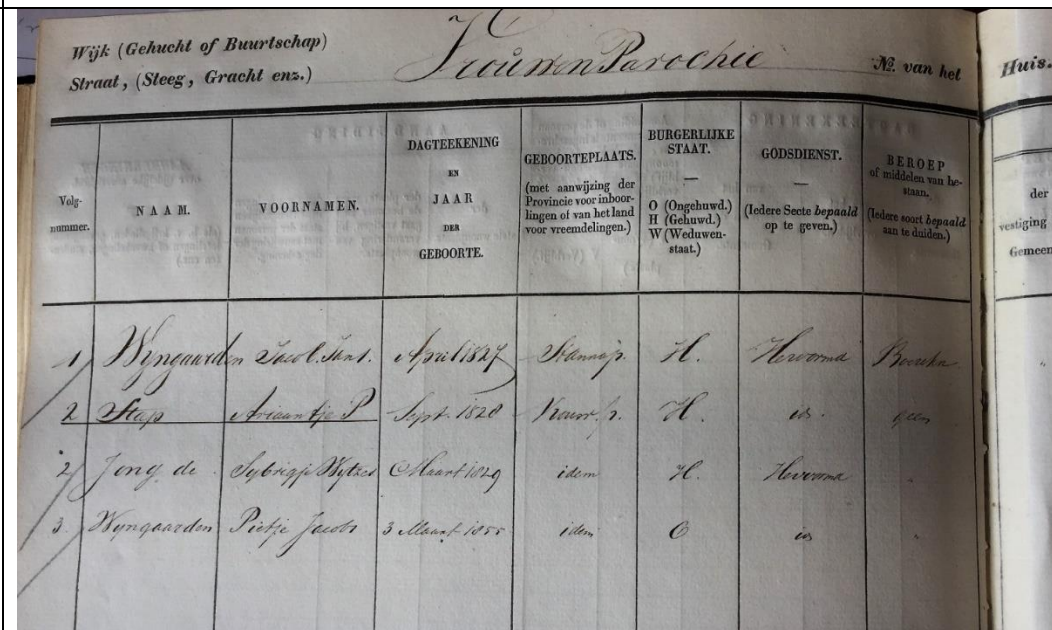 Wijk (Gehucht of Buurtschap)
Straat, (Steeg, Gracht enz.)
Vrouwen Parochie
No. van het
Huis.
Volg-
nummer.
NAAM.
VOORNAMEN.
DAGTEEKENING
EN
JAAR
DER
GEBOORTE.
GEBOORTEPLAATS.
(met aanwijzing der
Provincie voor inboor-
lingen of van het land
voor vreemdelingen.)
BURGERLIJKE
STAAT.
—
O (Ongehuwd.)
H (Gehuwd.)
W (Weduwen-
staat.)
GODSDIENST.
—
(Iedere Secte bepaald
op te geven.)
BEROEP
of middelen van be-
staan.
(Iedere soort bepaald
aan te duiden.)
der
vestiging
Gemeen
1 Wyngaarden Jacob Jans. April 1827 H. Hervormd
2 Stap Ariaantje P Sept. 1828 Vrouw. p. H. id. geen
2 Jong de Sybrigje Wytzes Maart 1829 idem H. Hervormd
3. Wyngaarden Pietje Jacobs 3 Maart 1855 idem O id